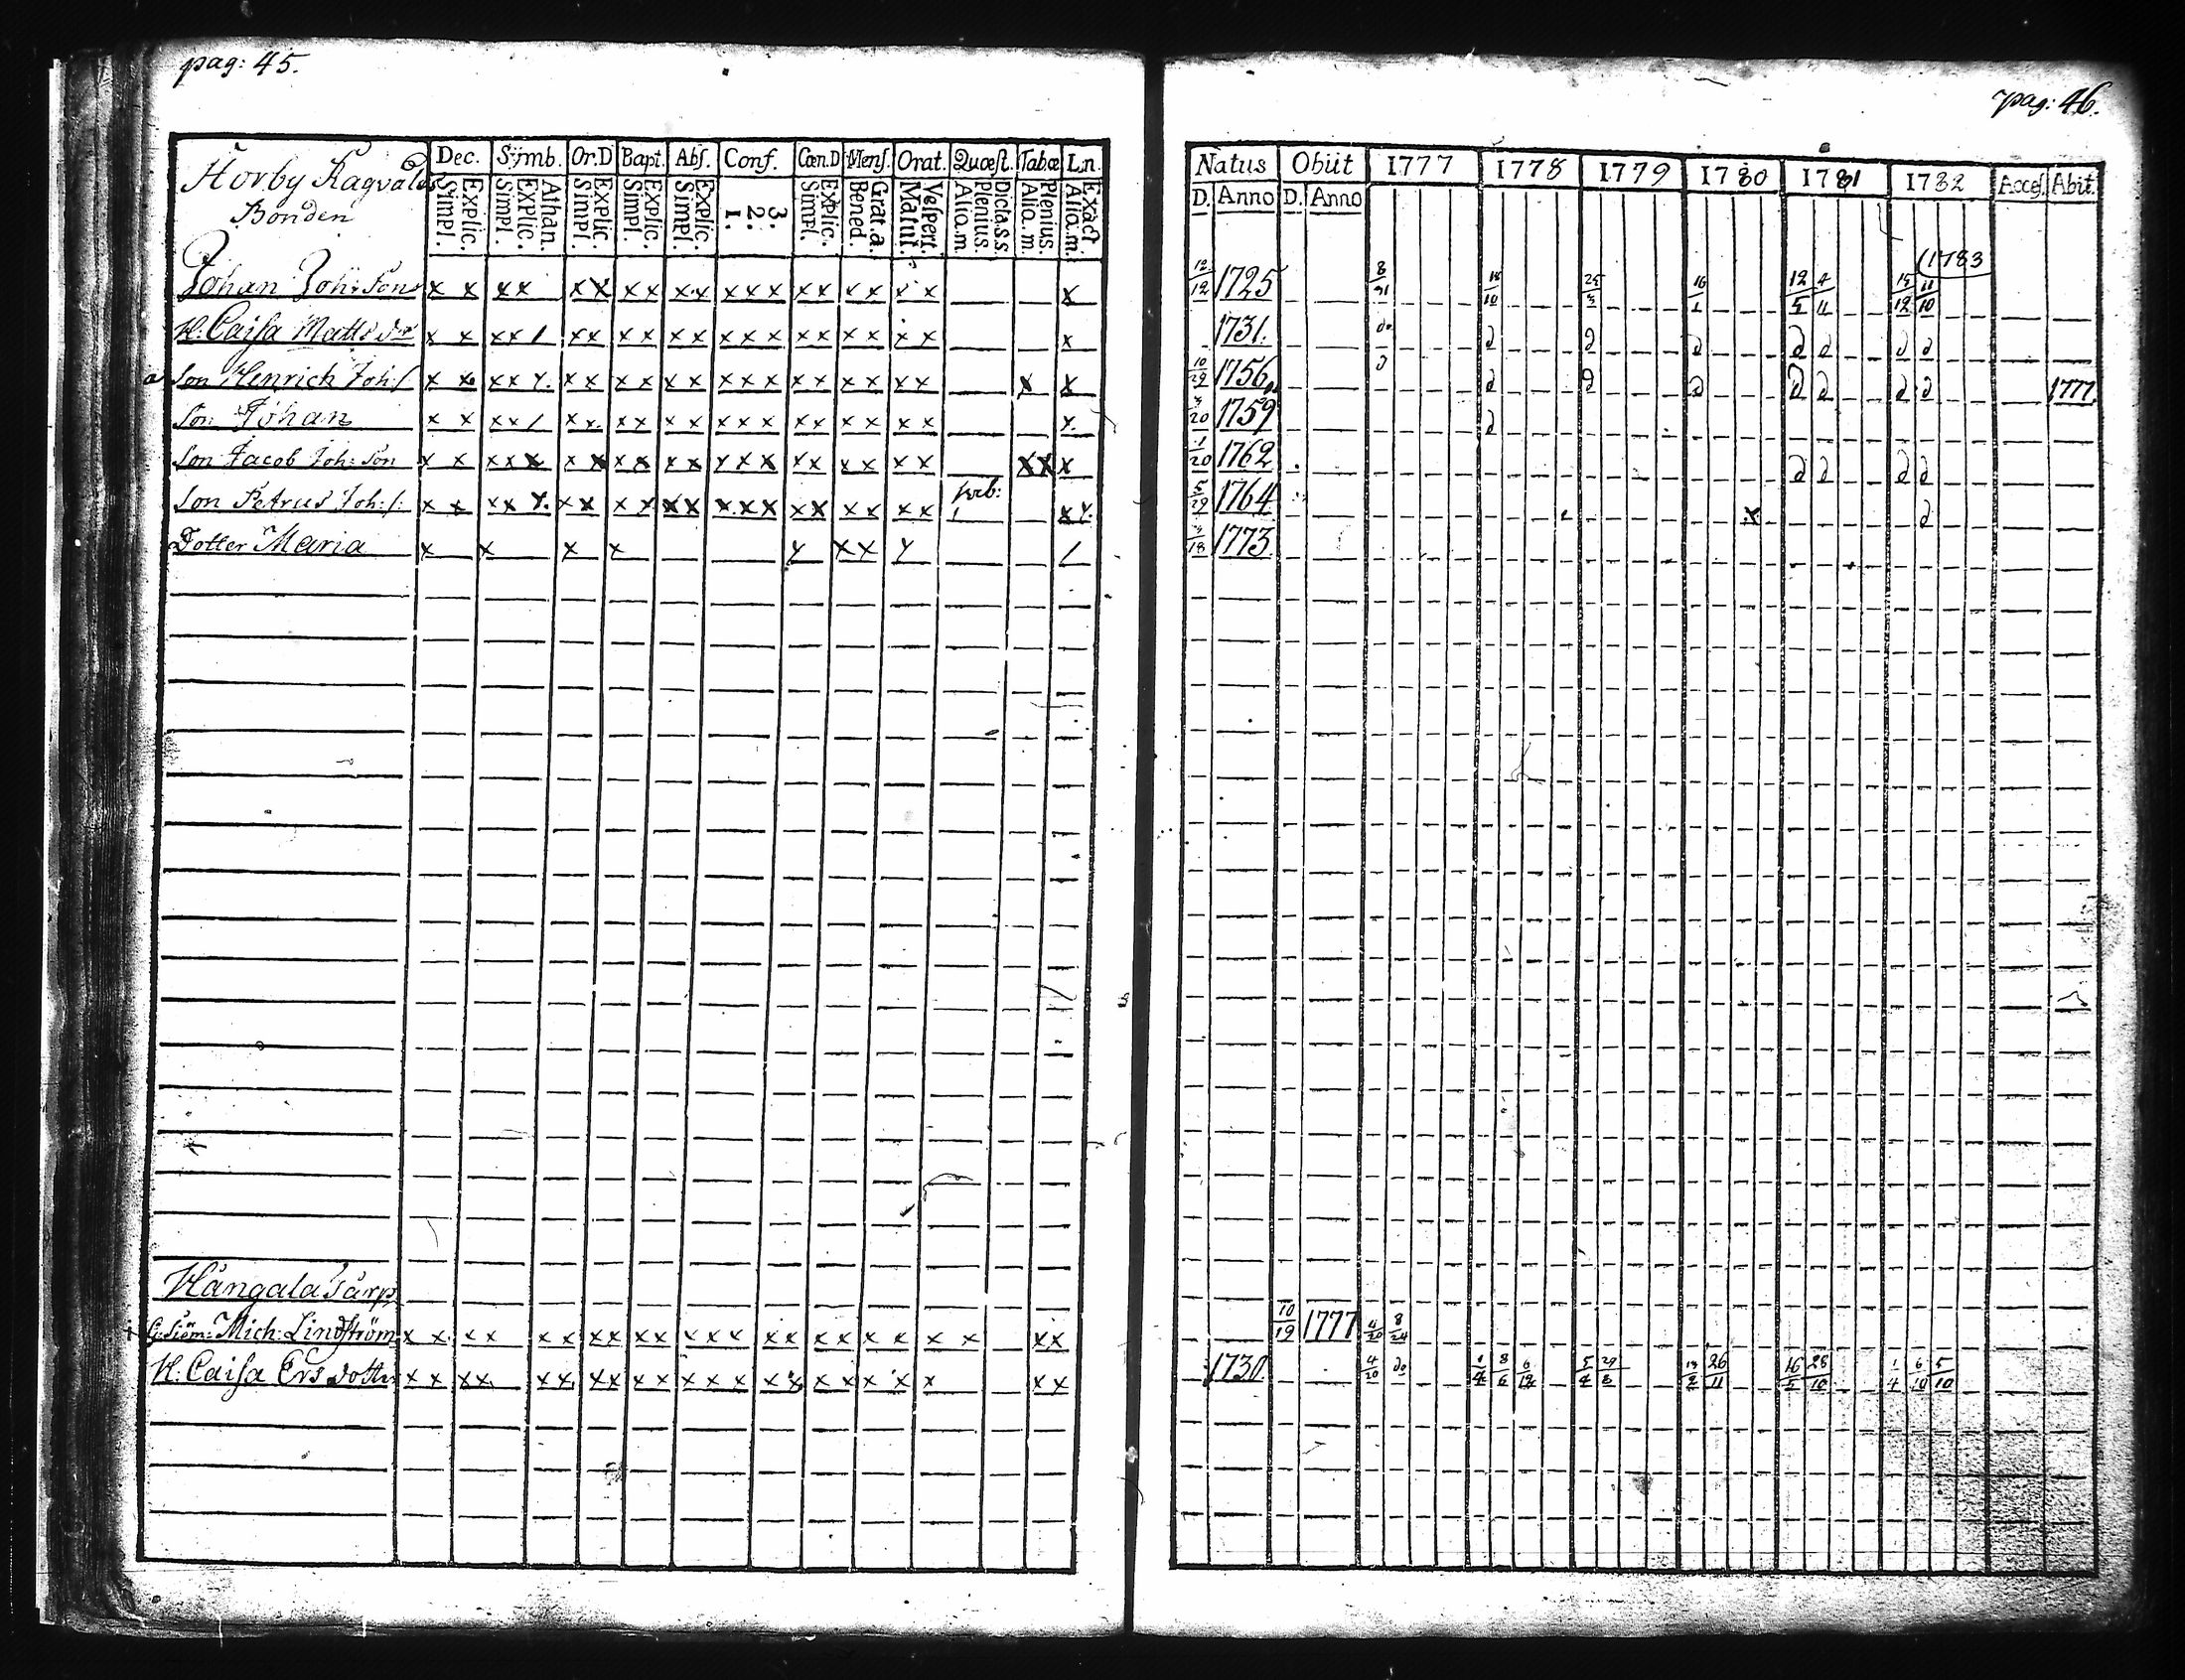 pag: 45.
Horby Ragvalds
Bonden
Dec. Symb. Or.D Bapt. Abſ. Conf. Cœn.D Menſ. Orat. Quœſt. Tabæ L.n.
Simpl. Explic. Simpl. Explic. Athan. Simpl. Explic. Simpl. Explic. Simpl. Explic. 1. 2. 3. Simpl. Explic. Bened. Grat.a. Matut. Veſpert. Alio.m Plenius. Dicta.s.s. Alio.m. Plenius. Alio.m. Exact
Johan Joh:Son x x x x x x x x x x x x x x x x x x x x
H: Caiſa Matts dr x x x x / x x x x x x x x x x x x x x x x
Son Henrich Joh:ſ x x x x x x x x x x x x x x x x x x x x x x
Son Johan x x x x / x x x x x x x x x x x x x x x x
Son Jacob Joh: Son x x x x x x x x x x x x x x x x x x x x x x x
Son Petrus Joh:ſ: x x x x x x x x x x x x x x x x x x x x x x
Dotter Maria x x x x x x x x /
Hångala Tårp
Mich: Lindström x x x x x x x x x x x x x x x x x x x x x x x
H: Caiſa Ers dotter x x x x x x x x x x x x x x x x x x x x x x
pag: 46.
Natus Obiit 1777 1778 1779 1780 1781 1782 Acceſ Abit.
D. Anno D. Anno
(1783
12/12 1725 8/31 18/10 25/3 16/1 12/5 4/11 15/12 11/10
1731. do ∂ ∂ ∂ ∂ ∂ ∂ ∂
10/29 1756 ∂ ∂ ∂ ∂ ∂ ∂ ∂ ∂ 1777
3/20 1759 ∂
1/20 1762 ∂ ∂ ∂ ∂
5/29 1764 x ∂
3/18 1773
10/19 1777 4/20 8/24
1730 4/20 do 1/4 8/6 6/12 5/4 29/8 13/2 26/11 16/5 28/10 1/4 6/10 5/10